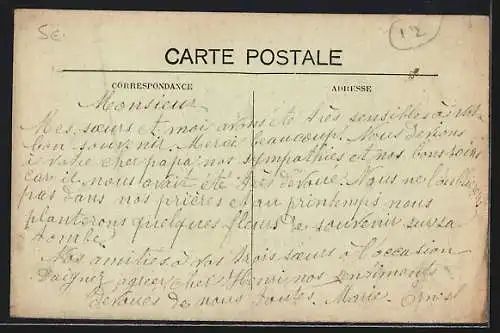 5E
12
CARTE POSTALE
CORRESPONDANCE
ADRESSE
Monsieur
Mes sœurs et moi avons été très sensibles à votre
bon souvenir Merci beaucoup! Nous devions
à votre cher papa nos sympathies et nos bons soins
car il nous avait été très dévoué. Nous ne l'oublions
pas dans nos prières et au printemps nous
planterons quelques fleurs de souvenir sur sa
tombe.
Nos amitiés à vos trois sœurs à l'occasion
Daignez agréer cher Henri nos sentiments
dévoués de nous toutes. Marie